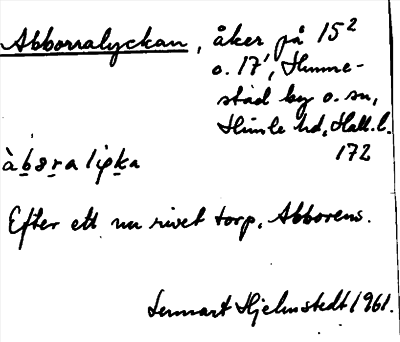 Abborralyckan, åker på 15²
o. 17¹, Hunne-
stad by o. sn,
Himle hd, Hall. l.
172
Efter ett nu rivet torp, Abborens.
Lennart Hjelmstedt 1961.